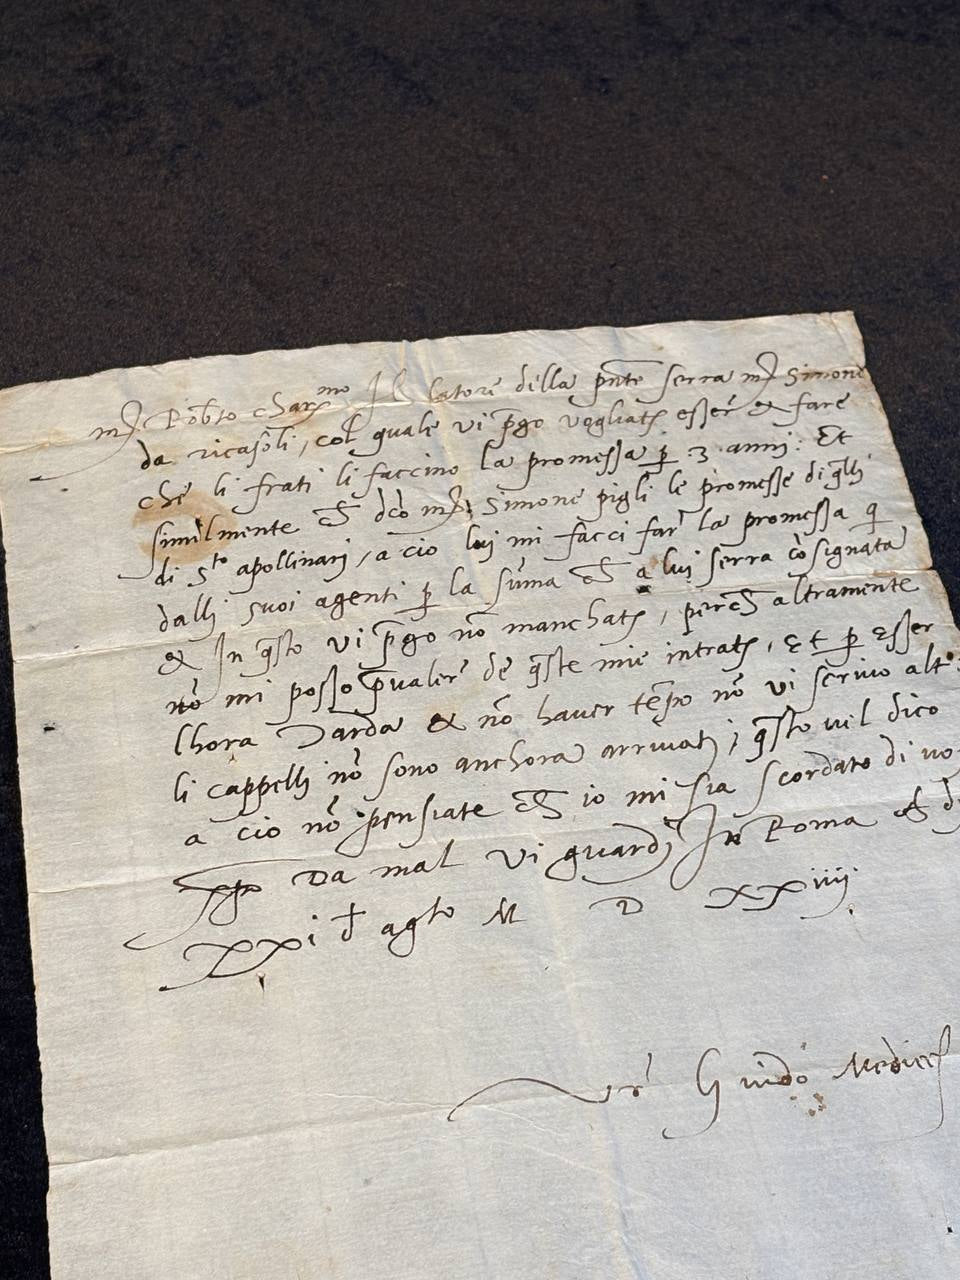 mr Robto charmo Il latore della pnte serra mr Simone
da ricasoli, col quale vi pgo vogliate esser & fare
che li frati li faccino la promessa p 3 anni. Et
similmente che dco mr Simone pigli le promesse di qlli
di sto apollinari, a cio lui mi facci far la promessa q
dalli suoi agenti p la sūma che a lui serra cōsignata
& In qsto vi pgo nō manchate, perche altramente
nō mi posso pvaler de qste mie intrate, Et p esser
lhora tarda & nō haver tēpo nō vi scrivo alt
li cappelli nō sono anchora arrivati, qsto vel dico
a cio nō pensiate che io mi sia scordato di vo
Da mal vi guardi In Roma
XXi d agto M D XXiiii
Vr Guido Medici